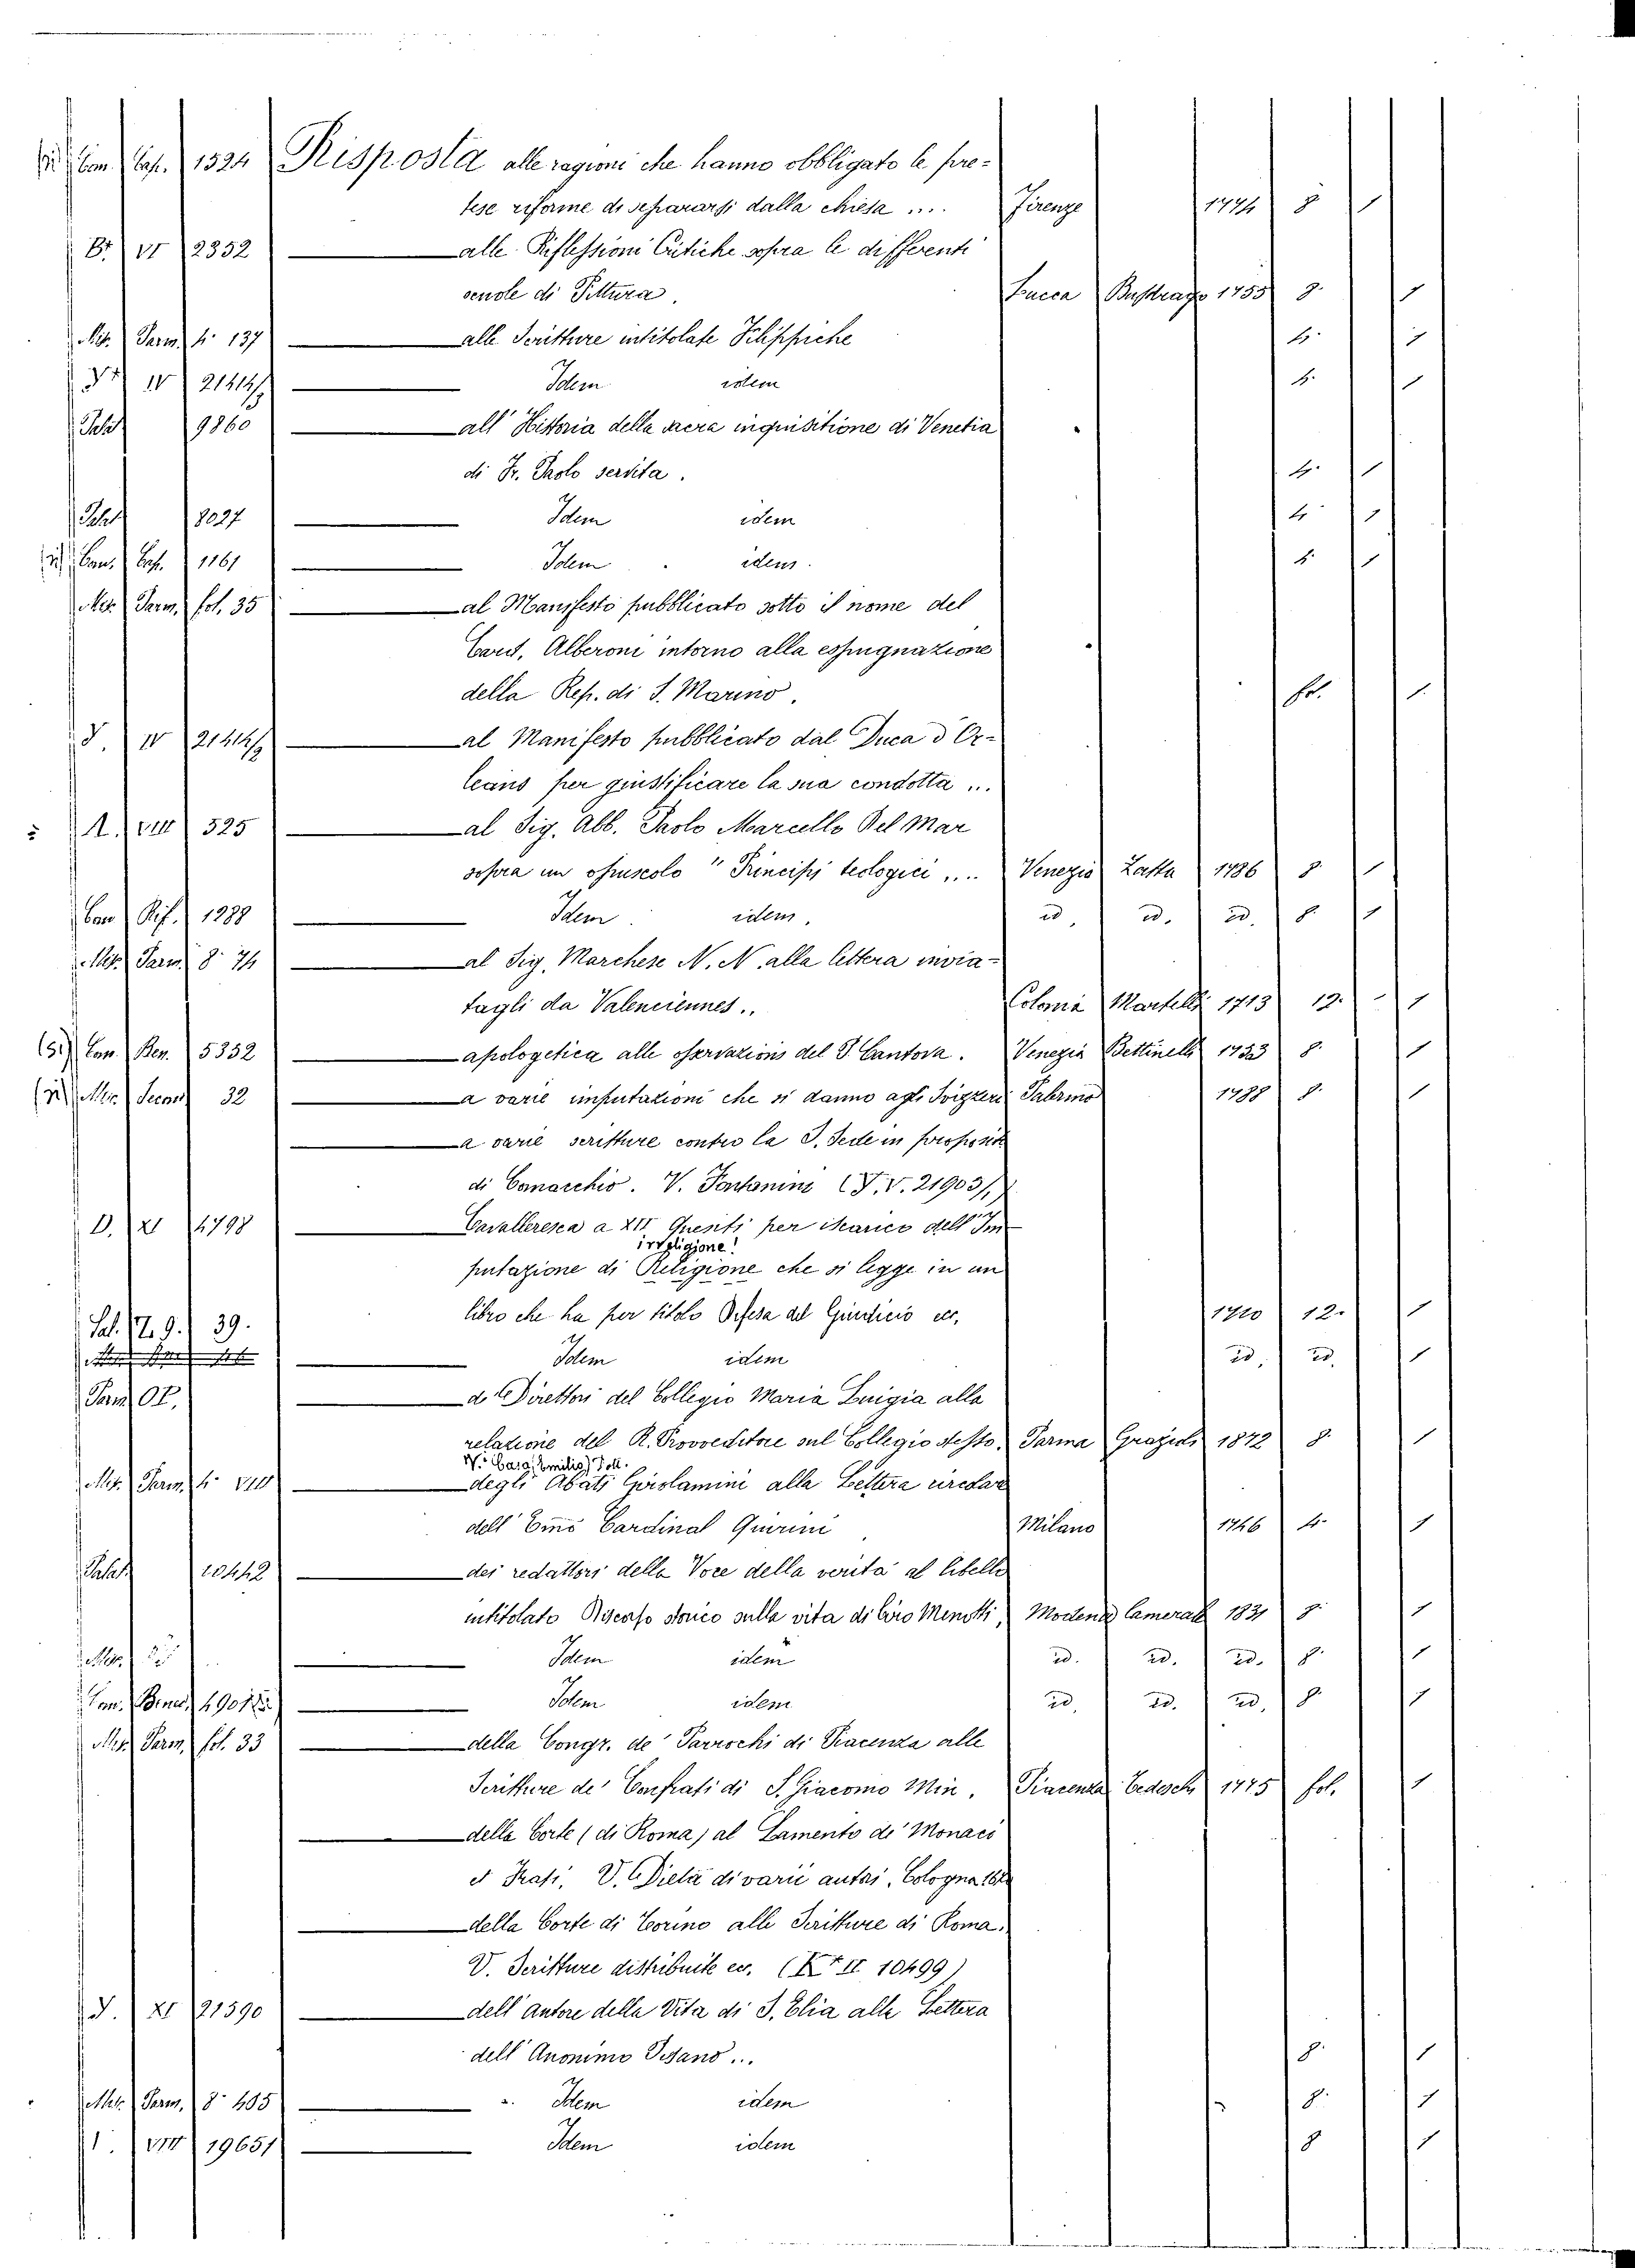 Cap. 1524 Risposta alle ragioni che hanno obbligato le pre=
tese riforme di separarsi dalla chiesa .... Firenze 1774 8 1
B. VI 2352 alle Riflessioni Critiche sopra le differenti
scuole di Pittura. Lucca 1755 8. 1
Mis. Parm. 4. 137 alle Scritture intitolate Filippiche 4. 1
IV 21414/2 Idem idem 4. 1
Palat 9860 all' Historia della sacra inquisitione di Venetia
di Fr. Paolo servita. 4. 1
Palat 8027 Idem idem 4 1
Cap. 1161 Idem idem. 4. 1
Mis. Parm. fol. 35 al Manifesto pubblicato sotto il nome del
Card. Alberoni intorno alla espugnazione
della Rep. di S. Marino. fol. 1
IV 21414/2 al Manifesto pubblicato dal Duca d'Or=
leans per giustificare la sua condotta ...
A. VIII 525 al Sig. Abb. Paolo Marcello Del Mar
sopra un opuscolo " Principj teologici .... Venezia Zatta 1786 8. 1
1288 Idem idem. id. id. id. 8. 1
Mis. Parm. 8. 74 al Sig. Marchese N. N. alla lettera invia=
tagli da Valenciennes.. Colonia Martelli 1713 12. 1
Ben. 5352 apologetica alle osservazioni del P. Cantova. Venezia Bettinelli 1753 8. 1
32 a varie imputazioni che si danno agli Svizzeri 1788 8. 1
a varie scritture contro la S. Sede in proposito
di Comacchio. V. Fontanini (T. V. 21903/)
D. XI 4798 Cavalleresca a XII Quesiti per iscarico dell' Im
irreligione!
putazione di Religione che si legge in un
libro che ha per titolo Difesa del Giudicio ec. 1710 12. 1
Sal. 39.
Idem idem id. id. 1
Parm. de' Direttori del Collegio Maria Luigia alla
relazione del R. Provveditore sul Collegio stesso. Parma Grazioli 1872 8. 1
V. Casa, Emilio) Poll.
Mis. Parm. 4. VIII degli Abati Girolamini alla Lettera circolare
dell' Emo Cardinal Quirini Milano 1746 4. 1
Palat 10442 dei redattori della Voce della verità al libello
intitolato Discorso storico sulla vita di Ciro Menotti, Modena Camerale 1831 8. 1
Mis. Idem idem id. id. id. 8. 1
Idem idem id. id. id. 8. 1
Mis. Parm. fol. 33 della Congr. de' Parrochi di Piacenza alle
Scritture de' Confrati di S. Giacomo Min. Piacenza 1775 fol. 1
della Corte (di Roma) al Lamento de' Monaci
et Frati. V. Dieta di varii autori. Cologna
della Corte di Torino alle Scritture di Roma.
V. Scritture distribuite ec. (K+ II 10499)
XI 21590 dell' autore della Vita di S. Elia alla Lettera
dell' Anonimo Pisano... 8. 1
Mis. Parm. 8. 405 Idem idem 8. 1
VIII 19651 Idem idem 8 1